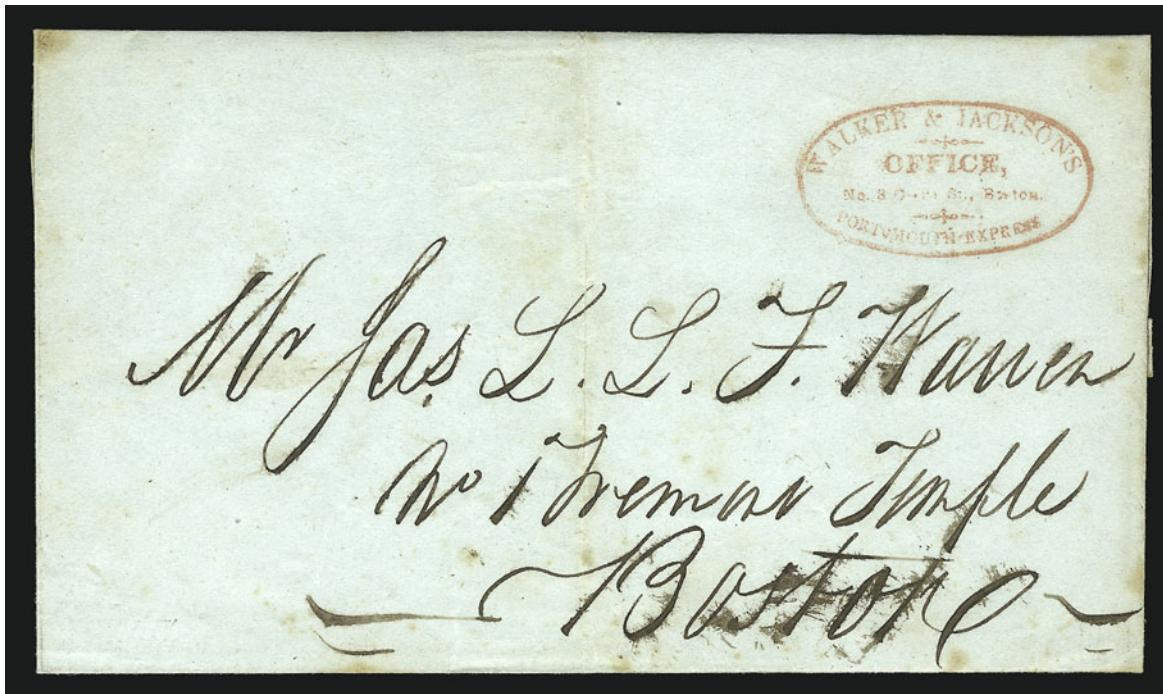 WALKER & JACKSON'S
OFFICE,
No. 8 St., Boston.
PORTSMOUTH EXPRESS
Mr Jas. L. L. F. Warren
No 1 Tremont Temple
Boston